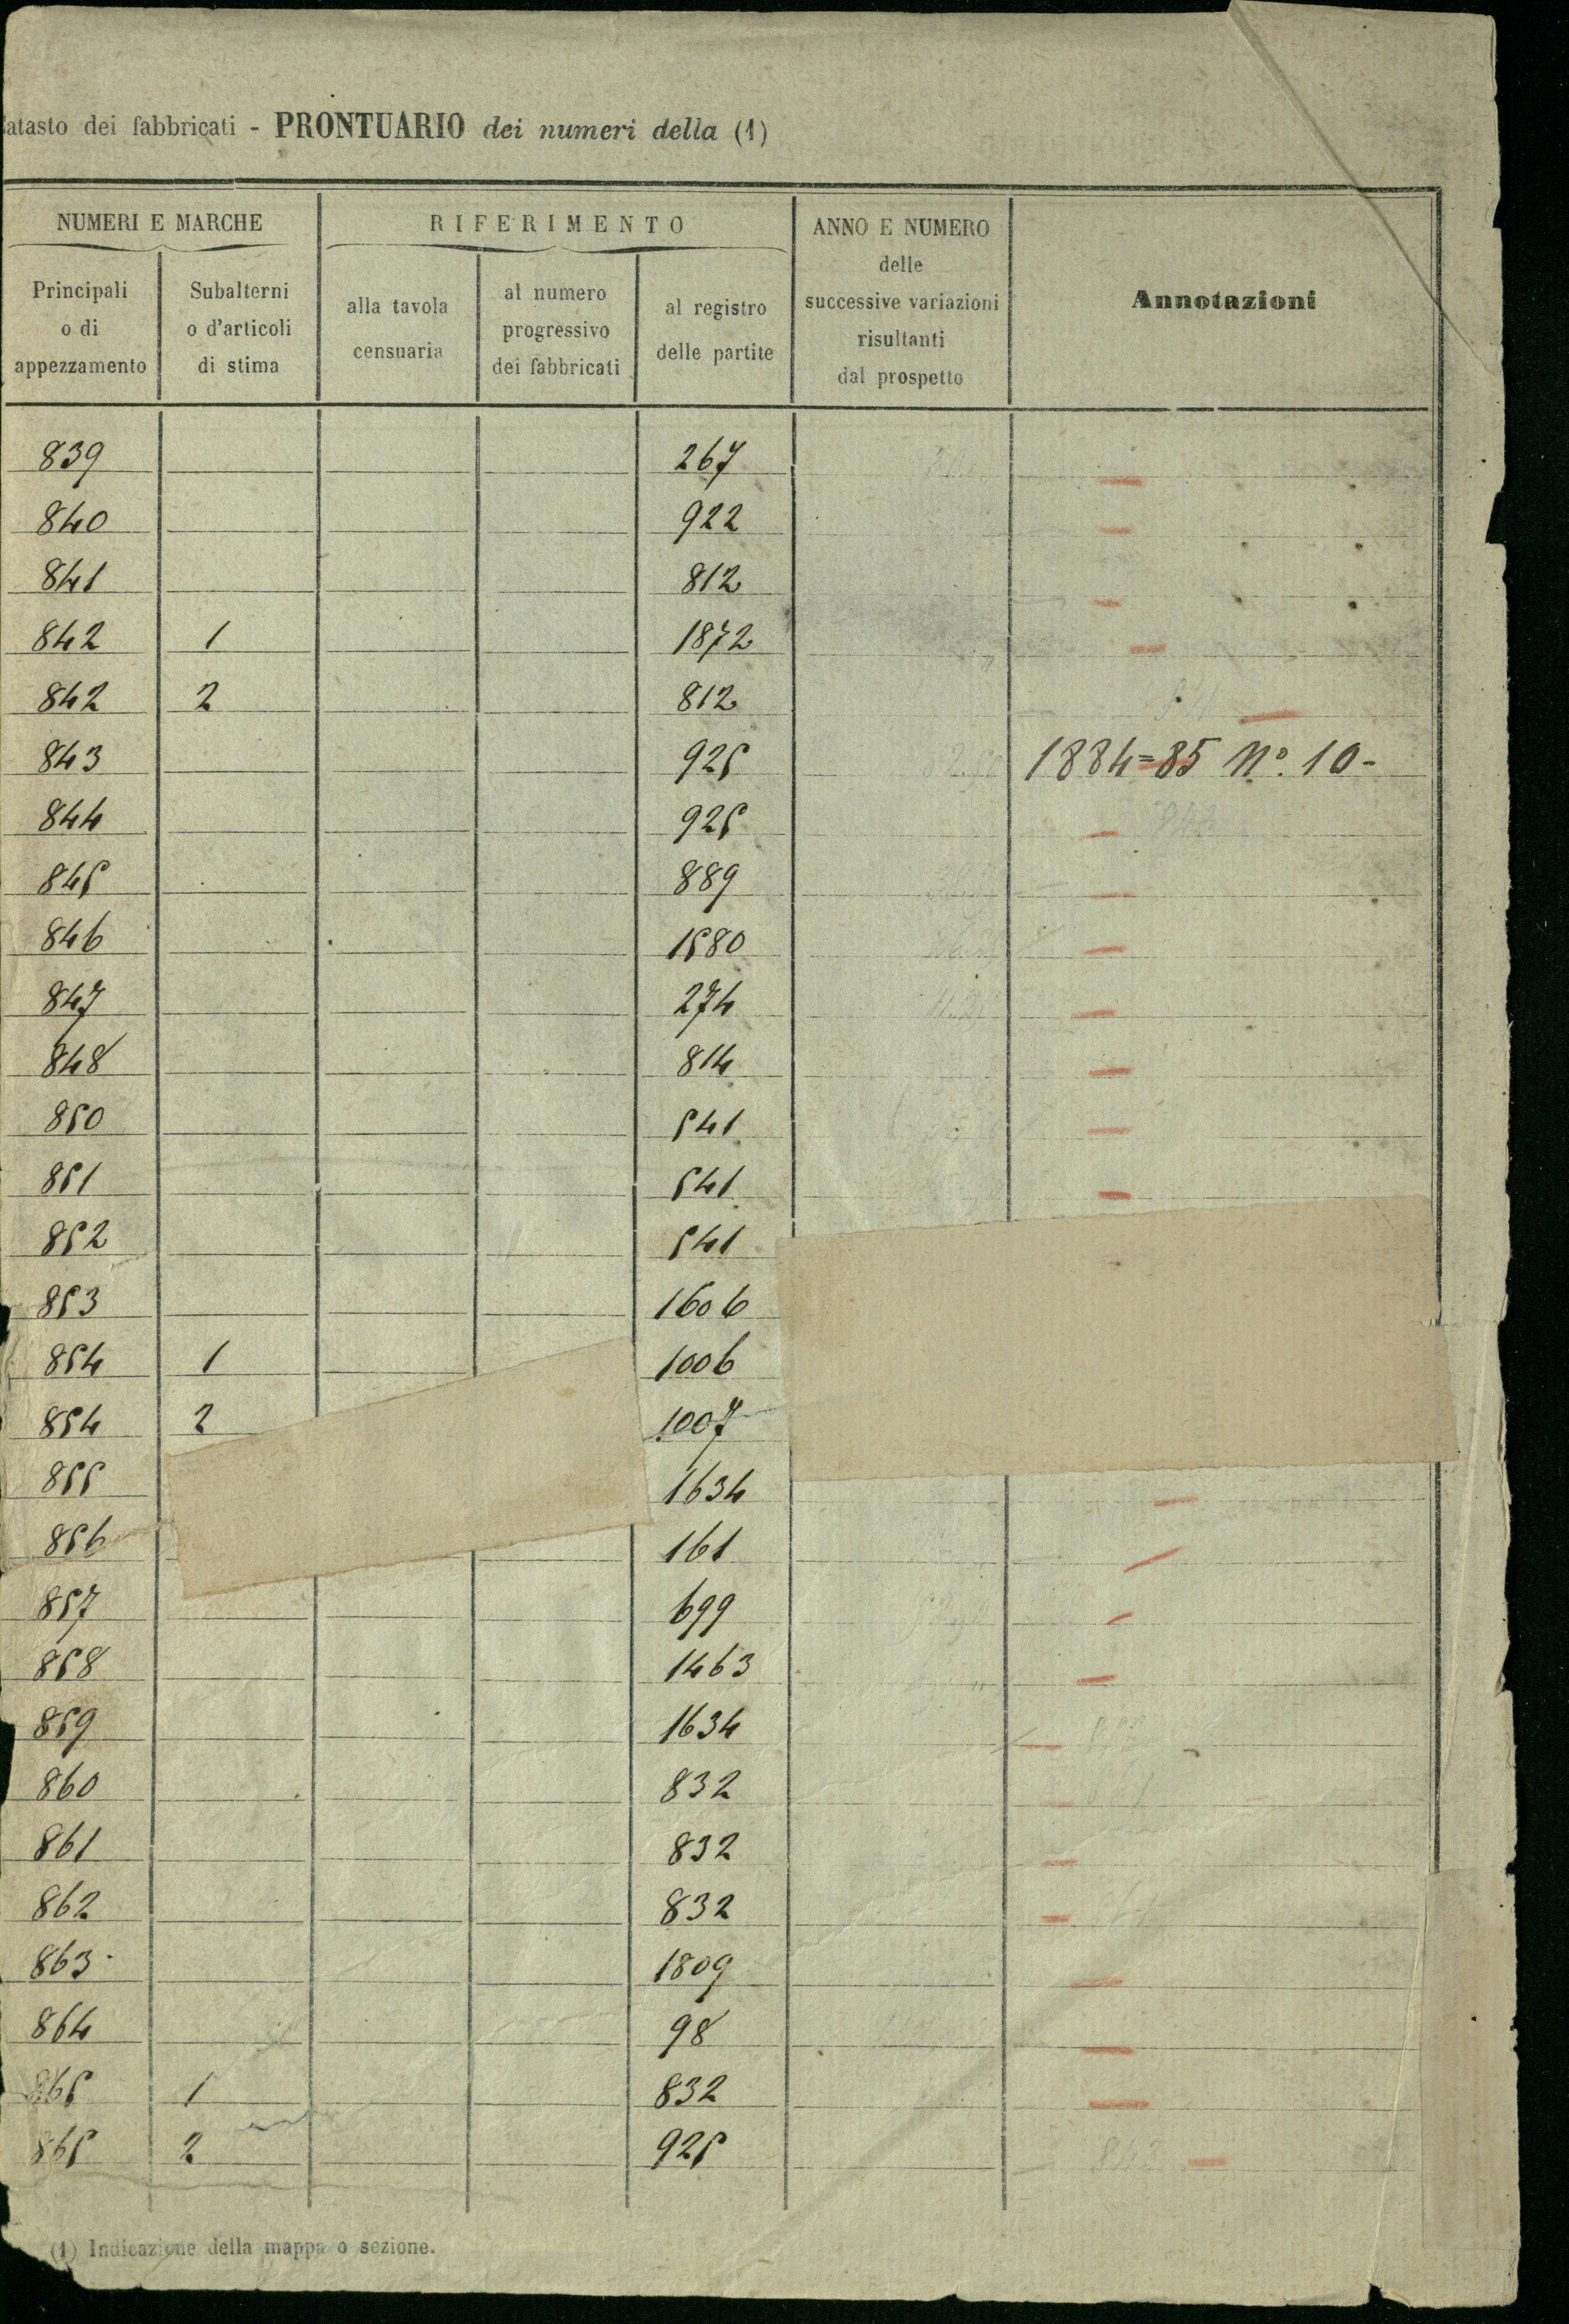 atasto dei fabbricati - PRONTUARIO dei numeri della (1)
NUMERI E MARCHE
RIFERIMENTO
ANNO E NUMERO
delle
successive variazioni
risultanti
dal prospetto
Annotazioni
Principali
o di
appezzamento
Subalterni
o d'articoli
di stima
alla tavola
censuaria
al numero
progressivo
dei fabbricati
al registro
delle partite
839 267
840 922
841 812
842 1 1872
842 2 812
843 925 1884=85 N.º 10-
844 925
845 889
846 1580
847 274
848 814
850 541
851 541
852 541
853 1606
854 1 1006
854 2 1007
855 1634
856 161
857 699
858 1463
859 1634
860 832
861 832
862 832
863 1809
864 98
865 1 832
865 2 925
(1) Indicazione della mappa o sezione.